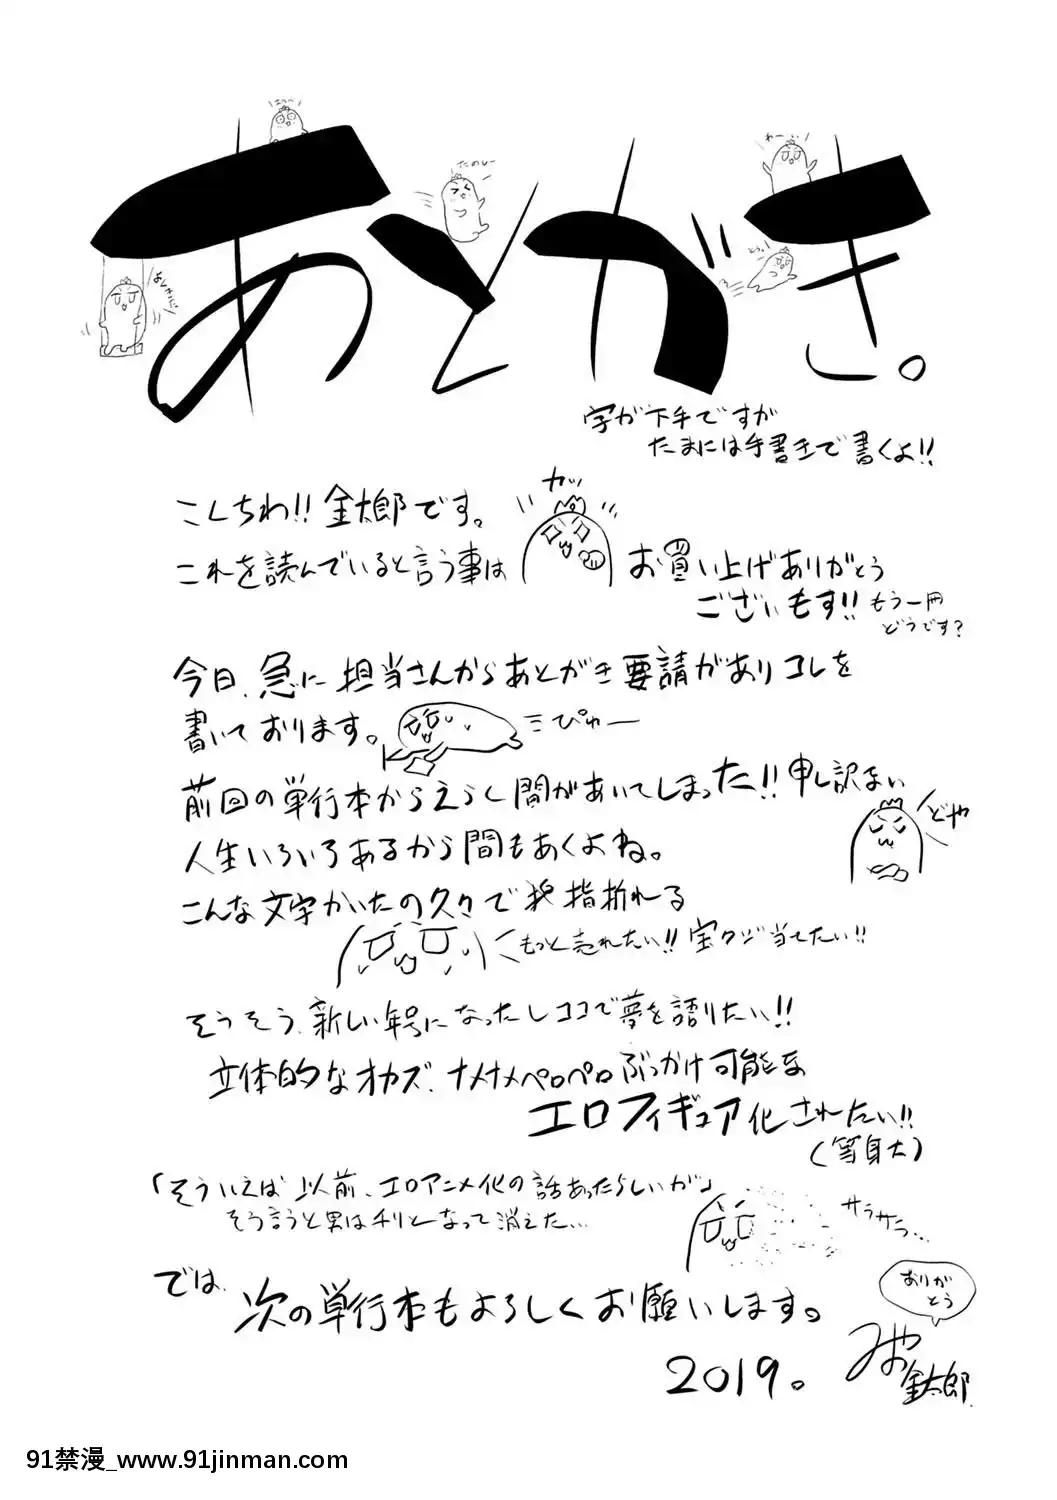 あとがき。
たのしー
わーーい
字が下手ですが
たまには手書きで書くよ!!
こんちわ!! 金太郎です。
カッ
これを読んでいると言う事は
お買い上げありがとう
ございもす!!
もう一冊
どうです?
今日、急に担当さんからあとがき要請がありコレを
書いております。
ぴゅー
前回の単行本からえらく間があいてしまった!! 申し訳ない
どや
人生いろいろあるから間もあくよね。
こんな文字かいたの久々で 指折れる
もっと売れたい!! 宝クジ当てたい!!
そうそう、新しい年号になったしココで夢を語りたい!!
立体的なオカズ、ナメナメペロペロぶっかけ可能な
エロフィギュア化されたい!!
(等身大)
「そういえば以前、エロアニメ化の話あったらしいが」
そう言うと男はチリとなって消えた…
サラサラ…
では、
次の単行本もよろしくお願いします。
ありが
とう
2019。
みやお
金太郎
91禁漫_www.91jinman.com